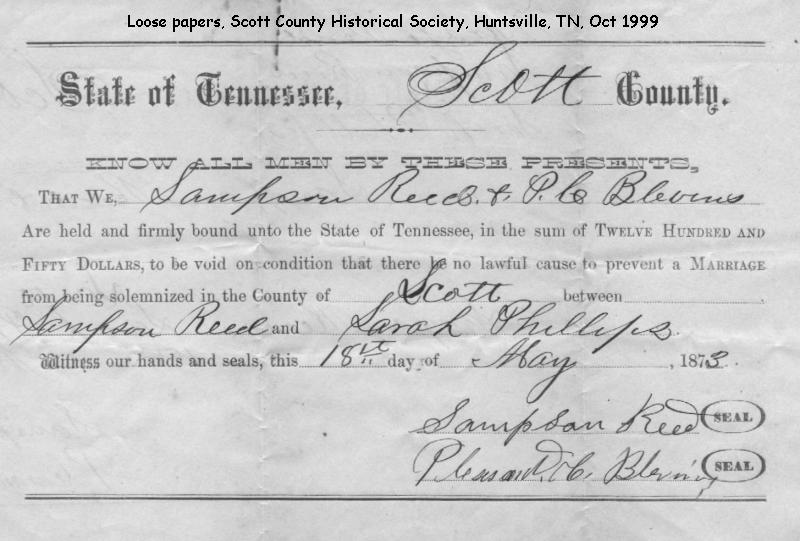 Loose papers, Scott County Historical Society, Huntsville, TN, Oct 1999
State of Tennessee, Scott County.
KNOW ALL MEN BY THESE PRESENTS,
THAT WE, Sampson Reed & P. C. Blevins
Are held and firmly bound unto the State of Tennessee, in the sum of TWELVE HUNDRED AND
FIFTY DOLLARS, to be void on condition that there be no lawful cause to prevent a MARRIAGE
from being solemnized in the County of Scott between
Sampson Reed and Sarah Phillips.
Witness our hands and seals, this 18th day of May, 1873.
Sampson Reed SEAL
Pleasant C. Blevins SEAL